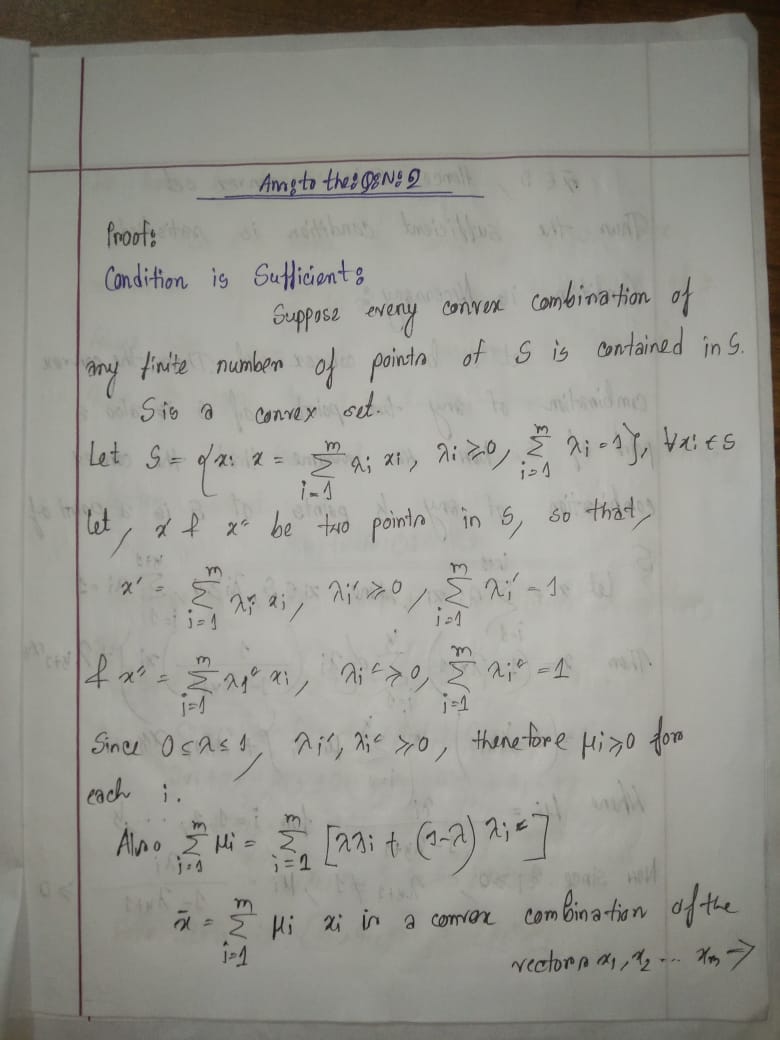 Ans to the: Q: No: 2
Proof:
Condition is Sufficient:
Suppose every convex combination of
any finite number of points of S is contained in S.
S is a convex set.
Let S = {x: x = Σ_{i=1}^{m} λi xi, λi ≥ 0, Σ_{i=1}^{m} λi = 1}, ∀xi ∈ S
Let, x' & x'' be two points in S, so that,
x' = Σ_{i=1}^{m} λi' xi, λi' ≥ 0, Σ_{i=1}^{m} λi' = 1
& x'' = Σ_{i=1}^{m} λi'' xi, λi'' ≥ 0, Σ_{i=1}^{m} λi'' = 1
Since 0 ≤ λ ≤ 1, λi', λi'' ≥ 0, therefore μi ≥ 0 for
each i.
Also Σ_{i=1}^{m} μi = Σ_{i=1}^{m} [λλi + (1-λ) λi'']
x̄ = Σ_{i=1}^{m} μi xi is a convex combination of the
vectors x1, x2 ... xm →